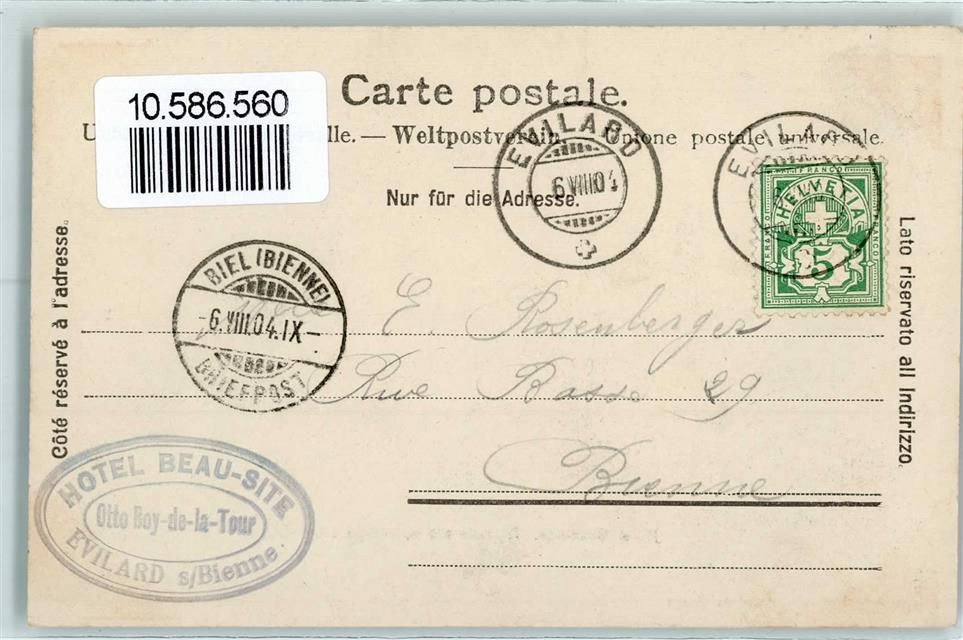 10.586.560
Carte postale.
lle. — Weltpostverein. Unione postale universale.
Nur für die Adresse.
EVILARD
6 VIII 04
EVILARD
FRANCO
HELVETIA
5
FRANCO
Côté réservé à l'adresse.
Lato riservato all Indirizzo.
BIEL (BIENNE)
-6.VIII.04.IX-
BRIEFPOST
E. Rosenberger
Rue Basse 29
Bienne
HOTEL BEAU-SITE
Otto Boy-de-la-Tour
EVILARD s/Bienne.